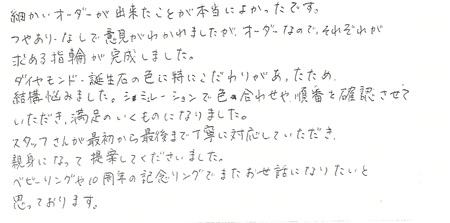 細かいオーダーが出来たことが本当によかったです。
つやあり・なしで意見がわかれましたが、オーダーなので、それぞれが
求める指輪が完成しました。
ダイヤモンド・誕生石の色に特にこだわりがあったため、
結構悩みました。シュミレーションで色合わせや順番を確認させて
いただき、満足のいくものになりました。
スタッフさんが最初から最後まで丁寧に対応していただき、
親身になって提案してくださいました。
ベビーリングや10周年の記念リングでまたお世話になりたいと
思っております。